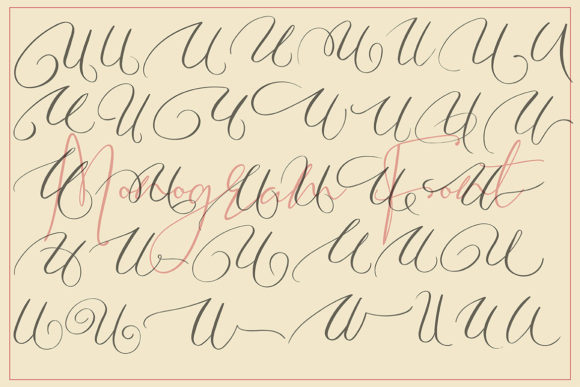 U U U U U U U U
U U U U U U U
Monogram Font
U U U U U U
U U U U U U
U U U U U U U